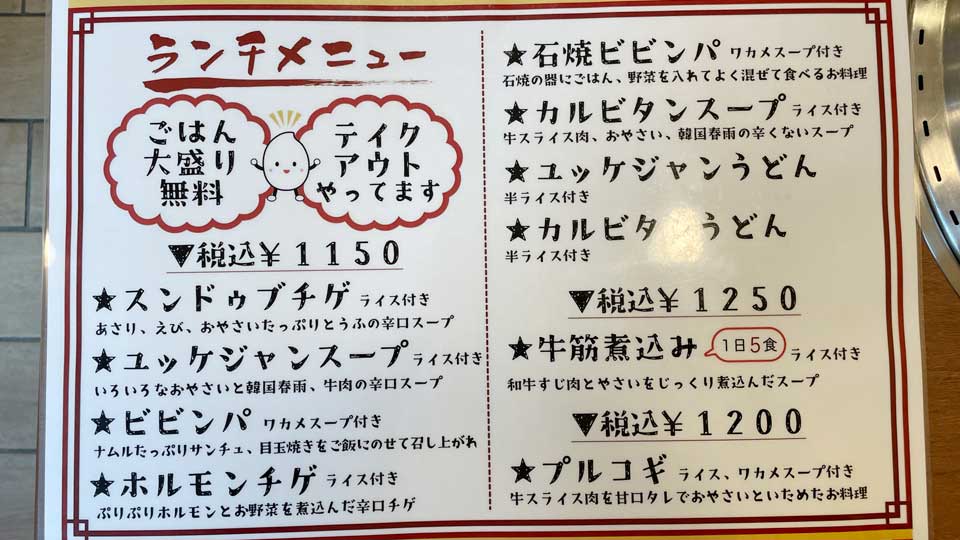 ランチメニュー
ごはん
大盛り
無料
テイク
アウト
やってます
▼税込¥1150
★スンドゥブチゲ ライス付き
あさり、えび、おやさいたっぷりとうふの辛口スープ
★ユッケジャンスープ ライス付き
いろいろなおやさいと韓国春雨、牛肉の辛口スープ
★ビビンパ ワカメスープ付き
ナムルたっぷりサンチュ、目玉焼きをご飯にのせて召し上がれ
★ホルモンチゲ ライス付き
ぷりぷりホルモンとお野菜を煮込んだ辛口チゲ
★石焼ビビンパ ワカメスープ付き
石焼の器にごはん、野菜を入れてよく混ぜて食べるお料理
★カルビタンスープ ライス付き
牛スライス肉、おやさい、韓国春雨の辛くないスープ
★ユッケジャンうどん
半ライス付き
★カルビタンうどん
半ライス付き
▼税込¥1250
★牛筋煮込み 1日5食 ライス付き
和牛すじ肉とやさいをじっくり煮込んだスープ
▼税込¥1200
★プルコギ ライス、ワカメスープ付き
牛スライス肉を甘口タレでおやさいといためたお料理